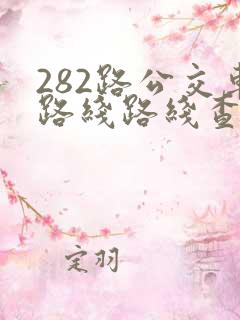 282路公交车
路线路线查
定羽